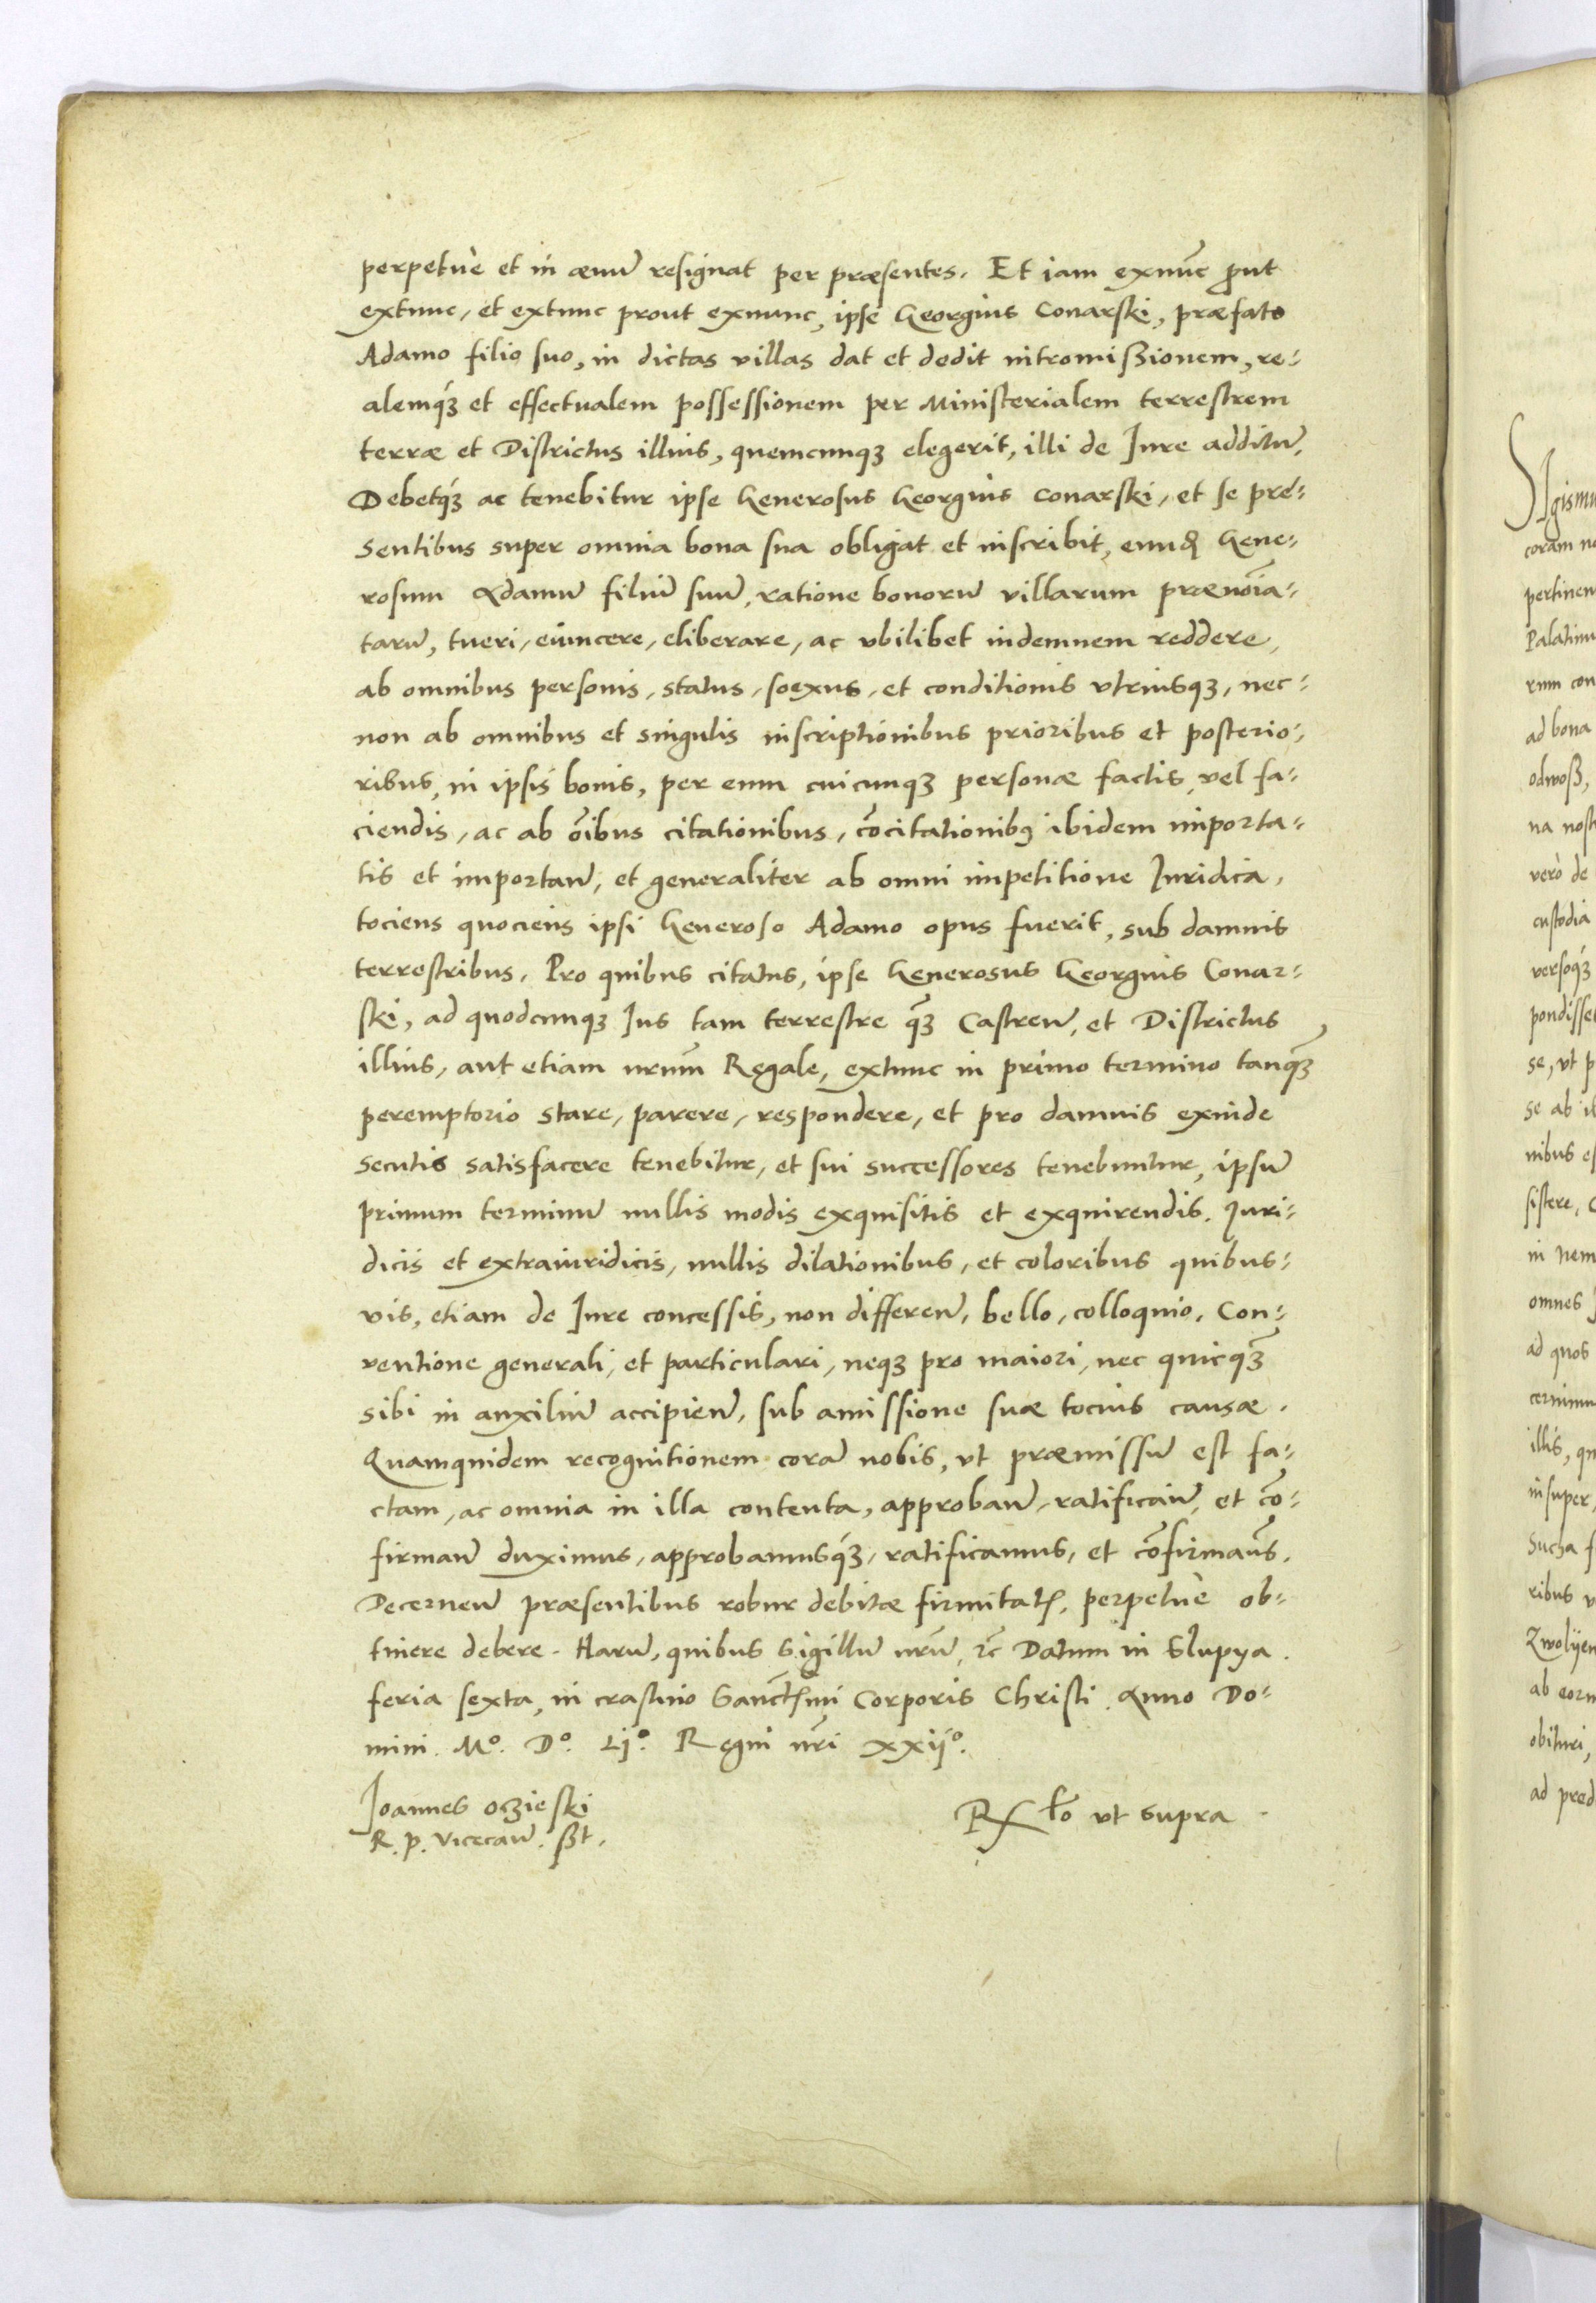 perpetuè et in æuum̃ resignat per præsentes. Et iam exnũc ꝓut
extunc, et extunc prout exnunc, ipse Georgius Conarski, præfato
Adamo filio suo, in dictas villas dat et dedit intromißionem, re-
alemq́ꝫ et effectualem possessionem per Ministerialem terrestrem
terræ et Districtus illius, quemcunqꝫ elegerit, illi de Iure additũ,
Debetq́ꝫ ac tenebitur ipse Generosus Georgius Conarski, et se præ-
sentibus super omnia bona sua obligat et inscribit, eund Gene-
rosum Adamũ filiũ suũ, ratione bonorũ villarum prænoĩa-
tarũ, tueri, euincere, eliberare, ac vbilibet indemnem reddere,
ab omnibus personis, status, sexus, et conditionis vtriusqꝫ, nec-
non ab omnibus et singulis inscriptionibus prioribus et posterio-
ribus, in ipsis bonis, per eum cuicunqꝫ personæ factis, vel fa-
ciendis, ac ab õibus citationibus, cõcitationibꝰ ibidem importa-
tis et importan̄, et generaliter ab omni impetitione Iuridica,
tociens quociens ipsi Generoso Adamo opus fuerit, sub damnis
terrestribus. Pro quibus citatus, ipse Generosus Georgius Conar-
ski, ad quodcunqꝫ Ius tam terrestre q̃ꝫ Castren̄, et Districtus
illius, aut etiam nr̃um Regale, extunc in primo termino tanq̃ꝫ
peremptorio stare, parere, respondere, et pro damnis exinde
secutis satisfacere tenebitur, et sui successores tenebuntur, ipsũ
primum terminũ nullis modis exquisitis et exquirendis. Iuri-
dicis et extraiuridicis, nullis dilationibus, et coloribus quibus-
vis, etiam de Iure concessis, non differen̄, bello, colloquio, Con-
ventione generali, et particulari, neqꝫ pro maiori, nec quicq̃ꝫ
sibi in auxiliũ accipien̄, sub amissione suæ tocius causæ.
Quamquidem recognitionem corã nobis, vt præmissũ est fa-
ctam, ac omnia in illa contenta, approban̄, ratifican̄, et cõ-
firman̄ duximus, approbamusq́ꝫ, ratificamus, et cõfirmaũs.
Decernen̄ præsentibus robur debitæ firmitatꝭ, perpetuè ob-
tinere debere. Harũ, quibus Sigillũ nr̃ũ, ꝛc̃ Datum in Slupya.
feria sexta, in crastino Sanctꝭmi Corporis Christi. Anno Do-
mini. Mº. Dº. Lijº. Regni nr̃i xxijº.
Joannes Oczieski
R. p. vicecan̄. ßt.
Rꝭlõ vt supra.
SIgismu
coram no
pertinen
Palatinu
rum con
ad bona
odwoß,
na nost
verò de
custodia
versoq́ꝫ
pondisse
se, vt p
se ab il
nibus es
sistere, c
in nem
omnes
ad quos
cernimu
illis, qu
insuper,
Sucha f
ribus v
Zwolijen
ab eoru
obituri,
ad pred